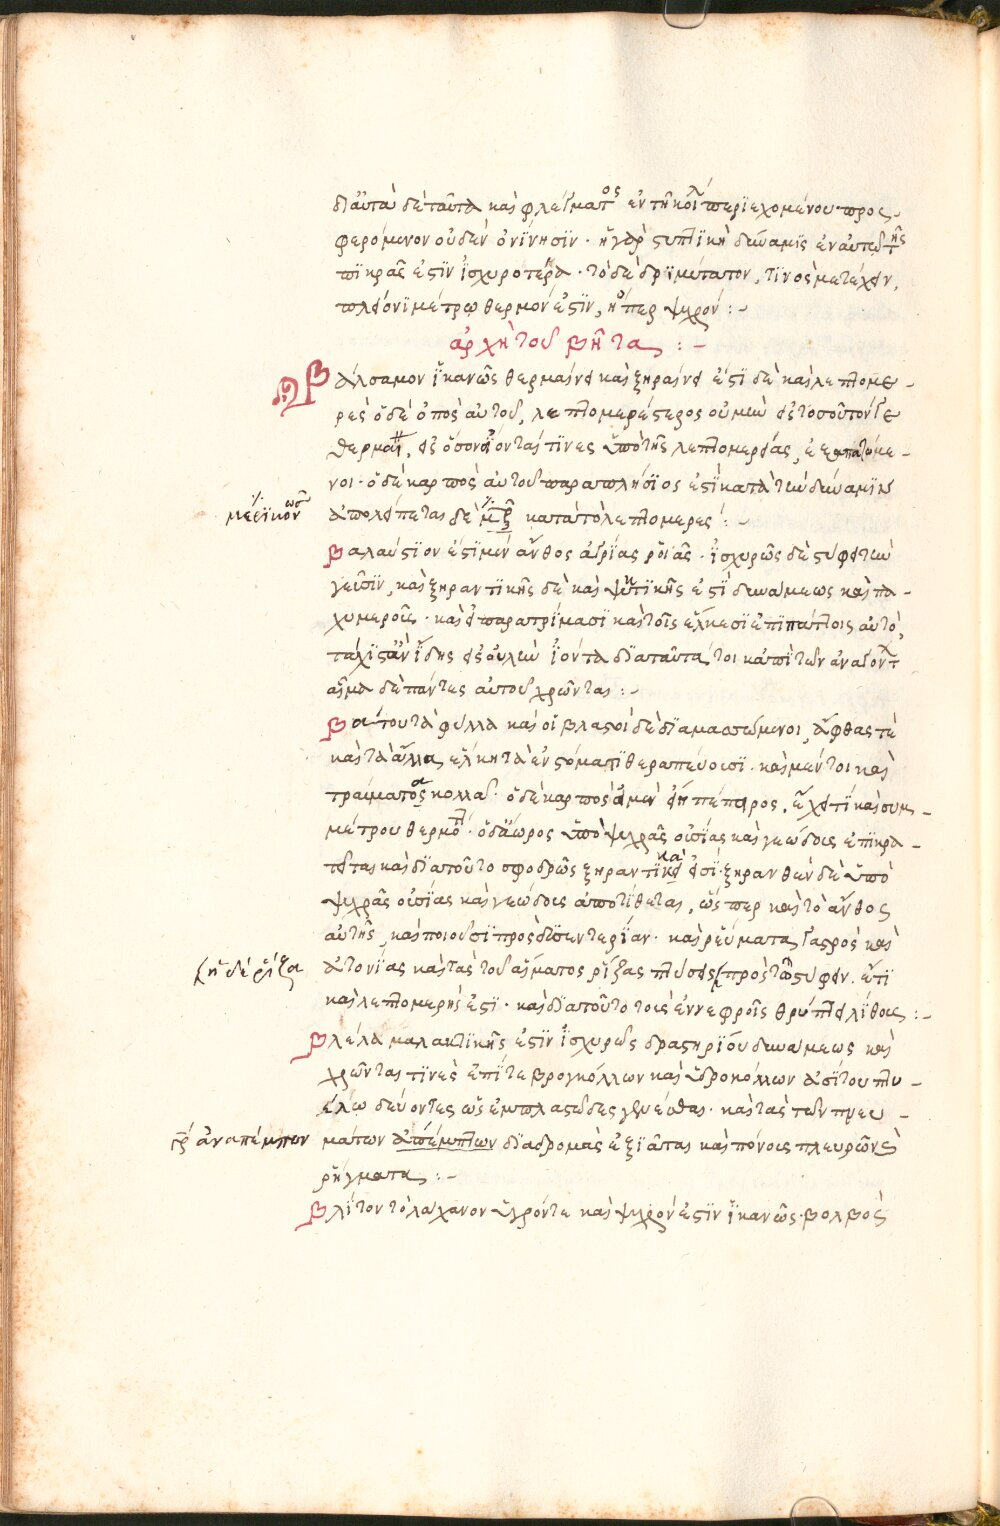 διὰ ταῦτα δὲ ταῦτα καὶ φλέγματος ἐν τῆ κοιλ περιεχομένου προς
φερόμενον οὐδὲν ὀνίνησιν · ἡ γὰρ στυπτικὴ δύναμις ἐν αὐτῶ τῆς
πικρᾶς ἐστὶν ἰσχυροτέρα · τὸ δὲ δριμύτατον, τινὸς μετέχειν,
πλείονι μέτρω θερμόν ἐστιν, ἤπερ ψυχρόν :-
ἀρχὴ τοῦ βῆτα :-
Βάλσαμον ἱκανῶς θερμαίνει καὶ ξηραίνει ἐστὶ δὲ καὶ λεπτομε-
ρές ὁ δὲ ὀπὸς αὐτοῦ, λεπτομερέστερος οὐ μὴν εἰς τοσοῦτόν γε
θερμαί, εἰς ὅσον οἴονταί τινες ὑπὸ τῆς λεπτομερείας, ἐξαπατώμε-
νοι · ὁ δὲ καρπὸς αὐτοῦ παραπλήσιος ἐστὶ κατὰ τὴν δύναμιν
μερικον ως
ἀπολείπεται δὲ κατὰ τὸ λεπτομερες :-
Βαλαύστιον ἐστὶ μὲν ἄνθος ἀγρίας ροιᾶς · ἰσχυρῶς δὲ στύφει τὴν
γεῦσιν, καὶ ξηραντικῆς δὲ καὶ ψυκτικῆς ἐστὶ δυνάμεως καὶ πα-
χυμεροῦς · καὶ εἰ παρατρίμασι καὶ τοῖς ἕλκεσι ἐπιπάττοις αὐτὸ,
τάχιστ' ἂν ἴδης εἰς οὐλὴν ἰόντα διὰ ταῦτα τοι κἀπὶ τῶν ἀναγόντ
αἷμα δὲ πάντες αὐτοῦ χρῶνται :-
Βάτου τὰ φύλλα καὶ οἱ βλαστοὶ δὲ διαμασσώμενοι, ἄφθας τὲ
καὶ τὰ ἄλλα ἕλκη τὰ ἐν στόματι θεραπεύουσι · καὶ μέντοι καὶ
τραύματα κολλᾶ · ὁ δὲ καρπὸς ἂ μὲν εἴη πέπειρος, ἔχει τι καὶ συμ-
μέτρου θερμοῦ · ὁ δ' ἄωρος ὑπὸ ψυχρᾶς οὐσίας καὶ γεώδους ἐπικρα-
τεῖται καὶ διὰ τοῦτο σφοδρῶς ξηραντικὰ ἐστί · ξηρανθὲν δὲ ὑπὸ
ψυχρᾶς οὐσίας καὶ γεώδους ἀποτίθεται, ὥσπερ καὶ τὸ ἄνθος
αὐτῆς, καὶ ποιοῦσι πρὸς δυσεντερίαν · καὶ ῥεύματα γαστρὸς καὶ
ἡ δὲ ῥίζα
ἀτονίας καὶ τὰς τοῦ αἵματος ῥίζας πτύσεις πρὸς τῶ στύφειν. ἔτι
καὶ λεπτομερής ἐστι · καὶ διὰ τοῦτο τοὺς ἐν νεφροῖς θρύπτει λίθους :-
Βδέλλα μαλακτικῆς ἐστὶν ἰσχυρῶς δραστηρίου δυνάμεως καὶ
χρῶνταί τινες ἐπί τε βρογκόλλων καὶ ὑδροκόλλων ἀσίτου πτυ-
έλω δεύοντες ὡς ἐμπλαστῶδες γενέσθαι · καὶ τὰς τῶν πνευ-
γρ ἀναπέμπων
μάτων ἀπέμπτων διαδρομὰς ἐξιᾶται καὶ πόνους πλευρῶν καὶ
ῥήγματα :-
Βλίτον τὸ λάχανον ὑγρόν τε καὶ ψυχρόν ἐστιν ἱκανῶς · βολβὸς